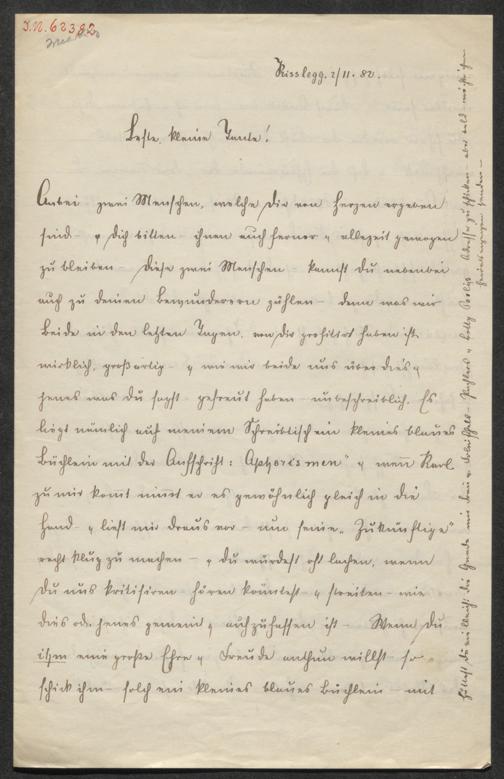 J.N. 62382
Kisslegg. 2/11. 82.
Beste, kleine Tante!
Anbei zwei Menschen, welche dir von Herzen ergeben
sind – & dich bitten – ihnen auch ferner & allezeit gewogen
zu bleiben – diese zwei Menschen – kannst du nebenbei
auch zu deinen Bewunderern zählen – denn was wir
beide in den letzten Tagen, von dir profitirt haben ist
wirklich, großartig – & wie wir beide uns über dies &
jenes was du sagst gefreut haben – unbeschreiblich. Es
liegt nämlich auf meinem Schreibtisch ein kleines blaues
Büchlein mit der Aufschrift: Aphorismen" & wenn Karl
zu mir komt nimt er es gewöhnlich gleich in die
Hand – & liest mir draus vor – um seine „Zukünftige"
recht klug zu machen – & du würdest oft lachen, wenn
du uns kritisiren hören könntest – & streiten – wie
dies od. jenes gemeint & aufzufassen ist – Wenn du
ihm eine große Ehre & Freude anthun willst so
schick ihm – solch ein kleines blaues Büchlein – mit
die Güte mir & Adresse zu schicken –